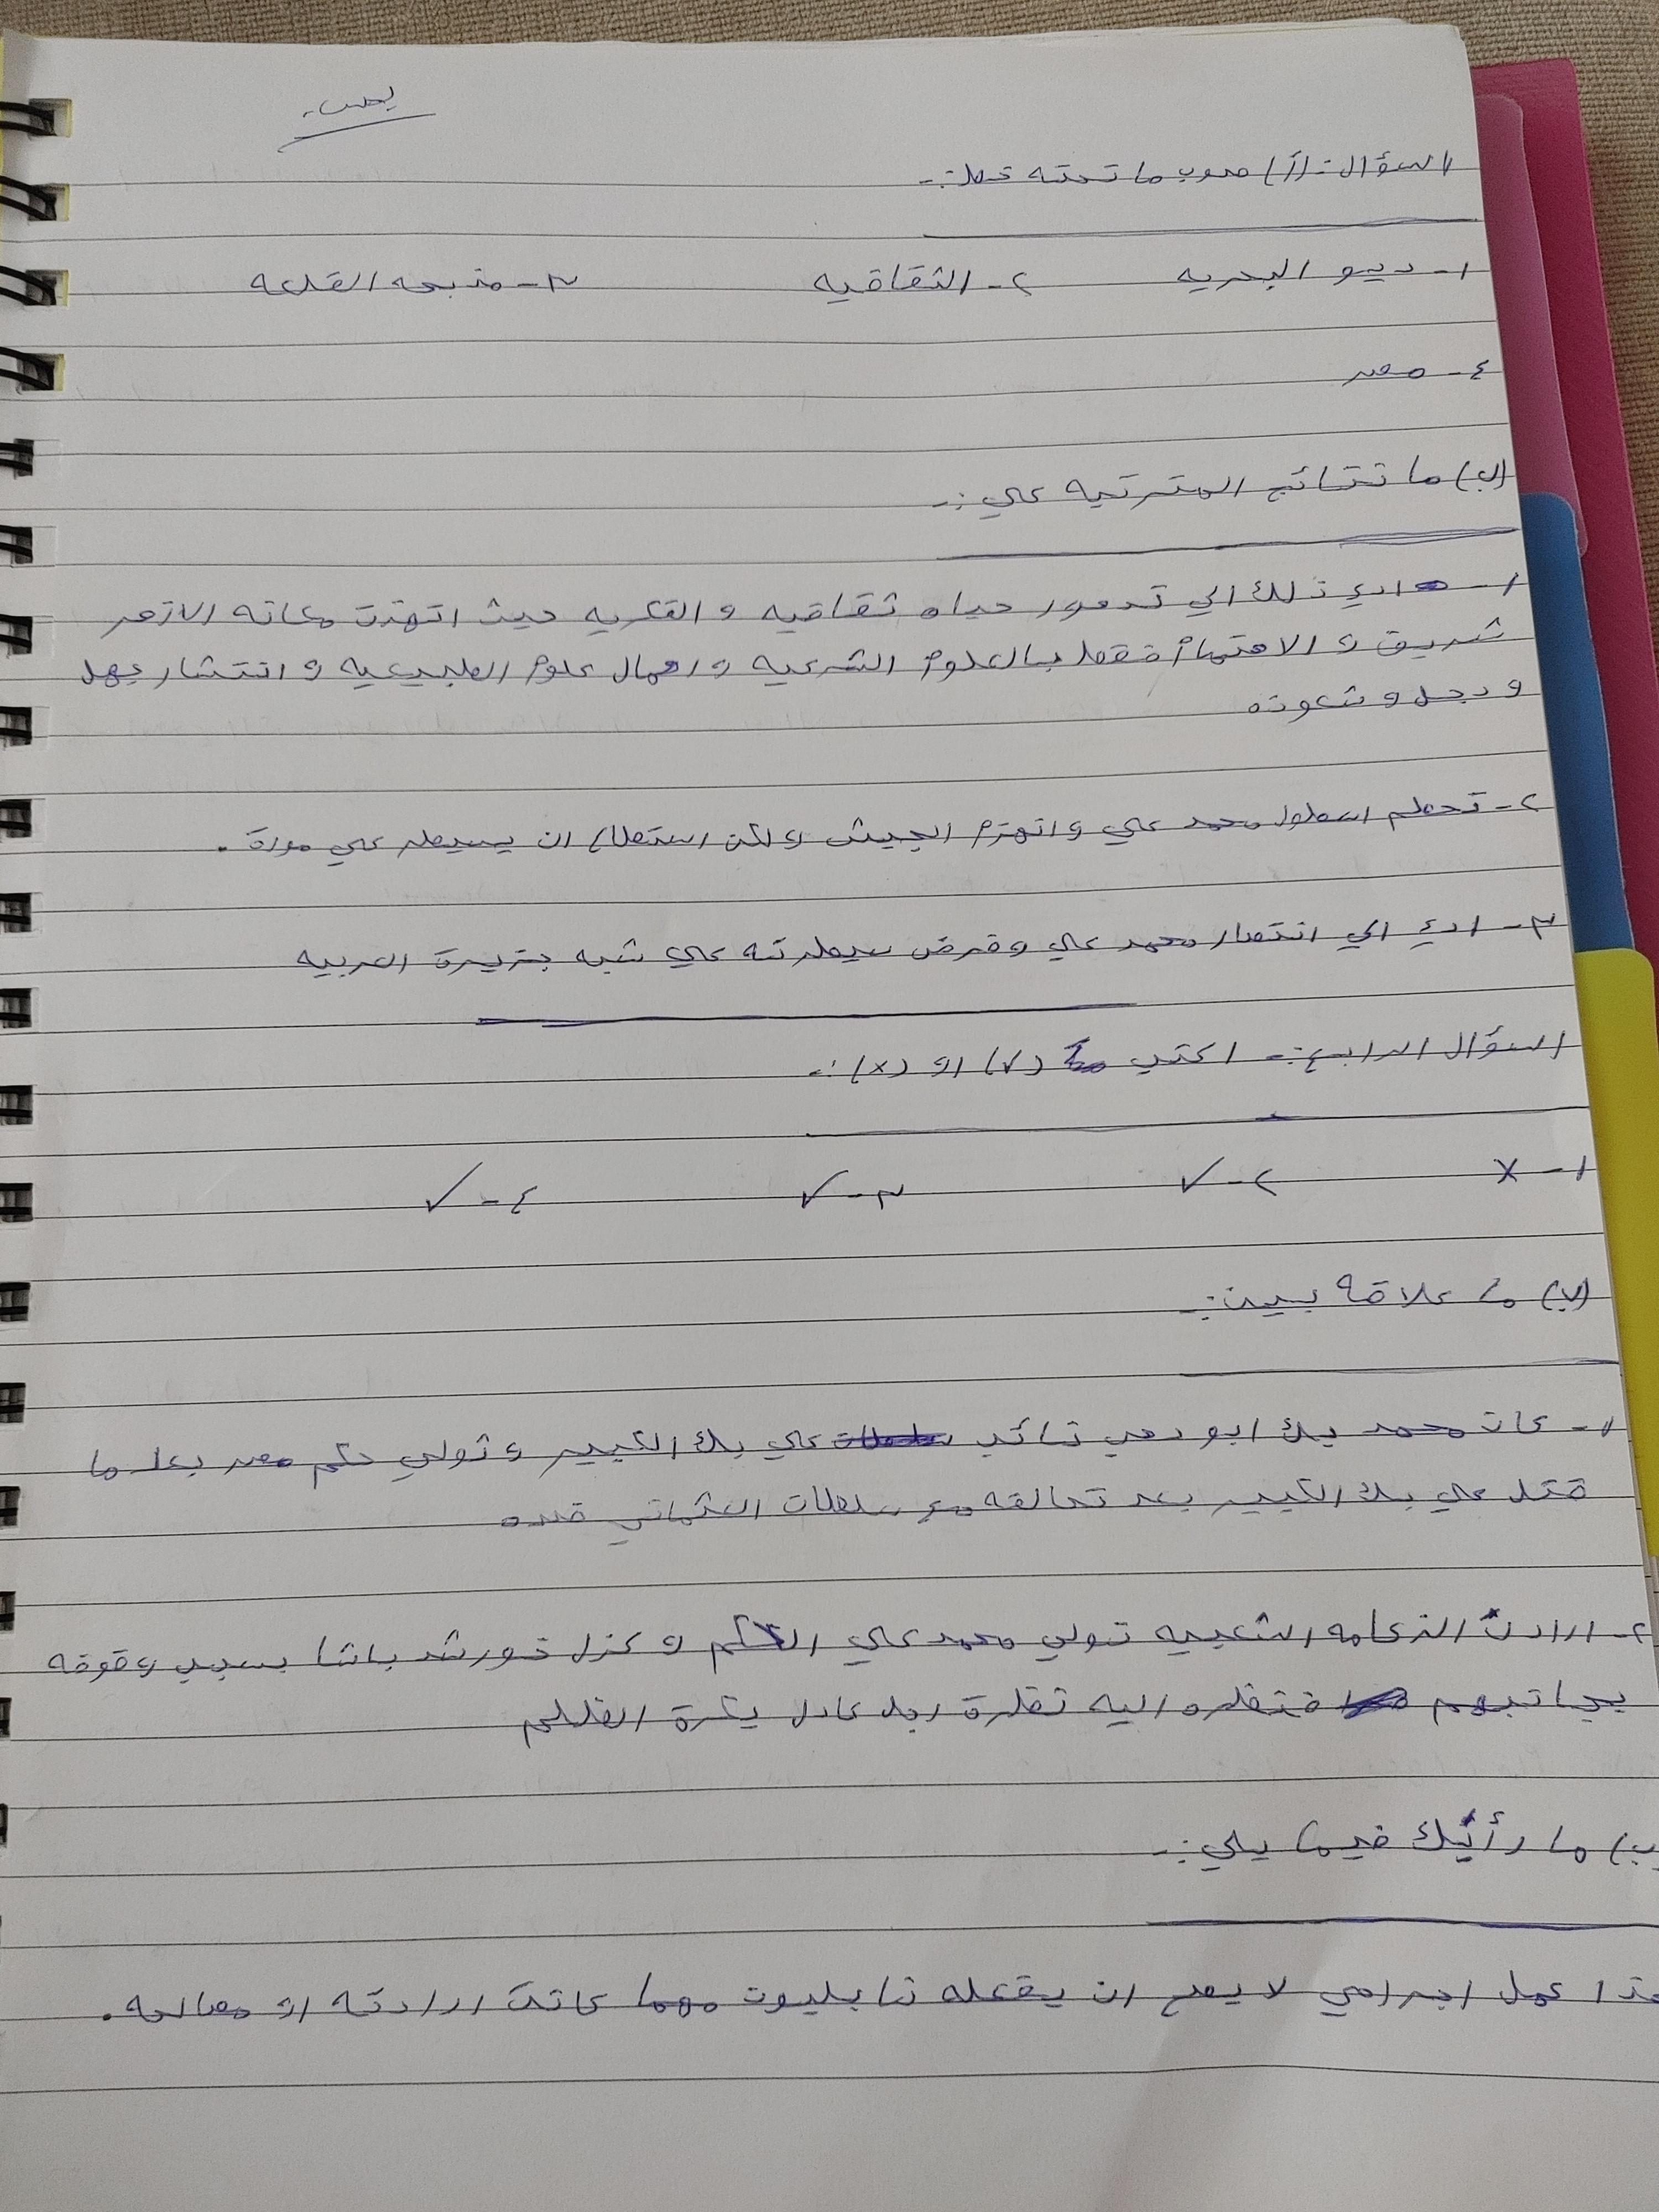 السؤال :(أ) صوب ما تحته خط :-
١- ديبو البحريه ٢- الثقافيه ٣- مذبحه القلعه
٤- مصر
(ب) ما نتائج المترتبه علي :-
١- ادي ذلك الي تدهور حياه ثقافيه و الفكريه حيث انهزت مكانه الازهر
شريف و الاهتمام فقط بالعلوم الشرعيه و اهمال علوم الطبيعيه و انتشار جهل
و دجل و شعوذه
٢- تحطم اسطول محمد علي و انهزم الجيش ولكن استطاع ان يسيطر علي مورة .
٣- ادي الي انتصار محمد علي وفرض سيطرته علي شبه جزيرة العربيه
السؤال الرابع :- اكتب (√) او (×) :-
١- × ٢- ✓ ٣- ✓ ٤- ✓
(ب) ما علاقه بين :-
١- كان محمد بك ابو دهب نائب علي بك الكبير و تولي حكم مصر بعد ما
قتل علي بك الكبير بعد تحالفه مع سلطات العثماني ضده
٢- ارادت الزعامه الشعبيه تولي محمد علي الحكم و عزل خورشد باشا بسبب وقوفه
بجانبهم فنظره اليه نظرة رجل عادل يكرة الظلم
ب) ما رأيك فيما يلي :-
هذا عمل اجرامي لا يصح ان يفعله نابليون مهما كانت ارادته او مصالحه .